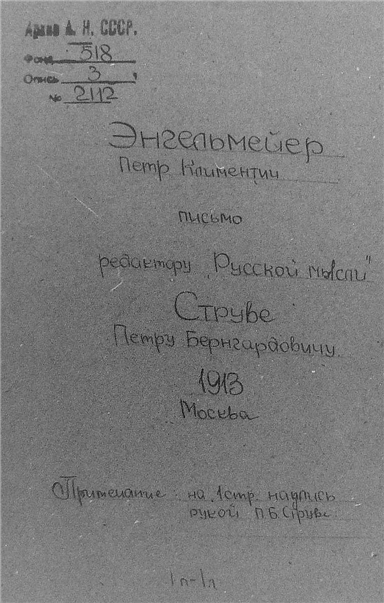 Архив А. Н. СССР.
Фонд 518
Опись 3,
№ 2112
Энгельмейер
Петр Климентич
письмо
редактору „Русской мысли"
Струве
Петру Бернгардовичу.
1913
Москва
Примечание: на 1 стр. надпись
рукой П.Б. Струве
1л-1л